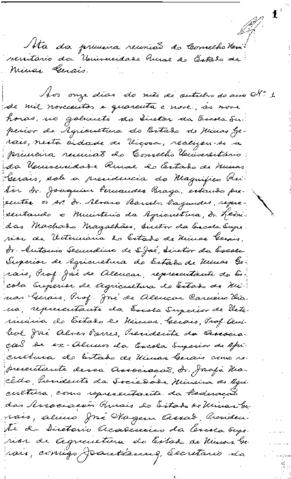 1
Ata da primeira reunião do Conselho Uni-
versitario da Universidade Rural do Estado de
Minas Gerais.
Aos onze dias do mês de outubro do ano Nº 1
de mil novecentos e quarenta e nove, às nove
horas, no gabinete do Diretor da Escola Su-
perior de Agricultura do Estado de Minas Ge-
rais, nesta cidade de Viçosa, realizou-se a
primeira reunião do Conselho Universitario
da Universidade Rural do Estado de Minas
Gerais, sob a presidencia do Magnifico Rei-
tor Dr. Joaquim Fernandes Braga, estando pre-
sentes o sr. Dr. Alvaro Barcelos Fagundes, repre-
sentando o Ministério da Agricultura, Dr.
das Machado Magalhães, Diretor da Escola Supe-
rior de Veterinaria do Estado de Minas Gerais,
Dr. Antonio Secundino de São José, Diretor da Escola
Superior de Agricultura do Estado de Minas Ge-
rais, Prof. José de Alencar, representante da Es-
cola Superior de Agricultura do Estado de Mi-
nas Gerais, Prof. José de Alencar Carneiro Via-
na, representante da Escola Superior de Vete-
rinária do Estado de Minas Gerais, Prof.
José Alves Torres, Presidente da Associa-
ção de ex-Alunos da Escola Superior de Agri-
cultura do Estado de Minas Gerais como re-
presentante dessa Associação, Dr. Josafá Ma-
cêdo, Presidente da Sociedade Mineira de Agri-
cultura, como representante da Federação
das Associações Rurais do Estado de Minas Ge-
rais, aluno José Nagem Assad, Presiden-
te do Diretório Acadêmico da Escola Supe-
rior de Agricultura do Estado de Minas Ge-
rais, comigo, Secretario da